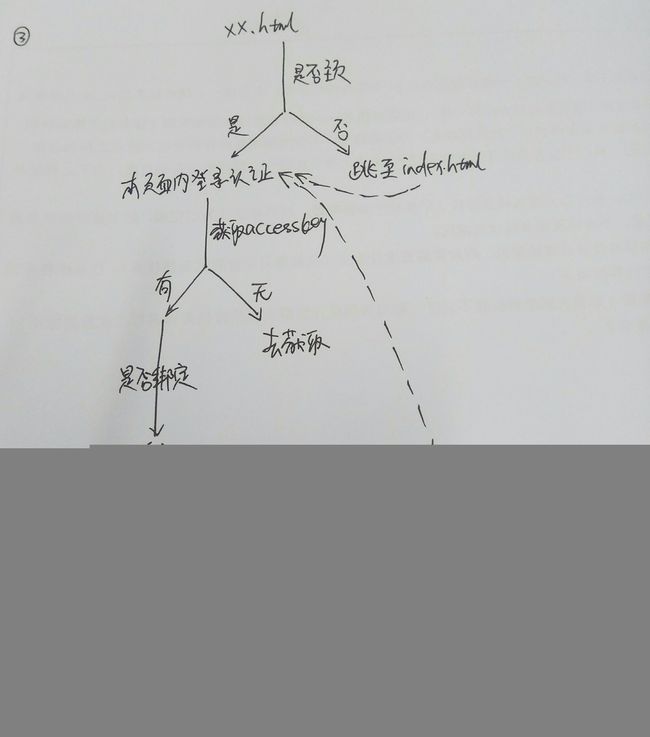 ③
xx.html
是否主页
是
否
本页面内登录认证
跳至index.html
获取accesskey
有
无
去获取
是否绑定